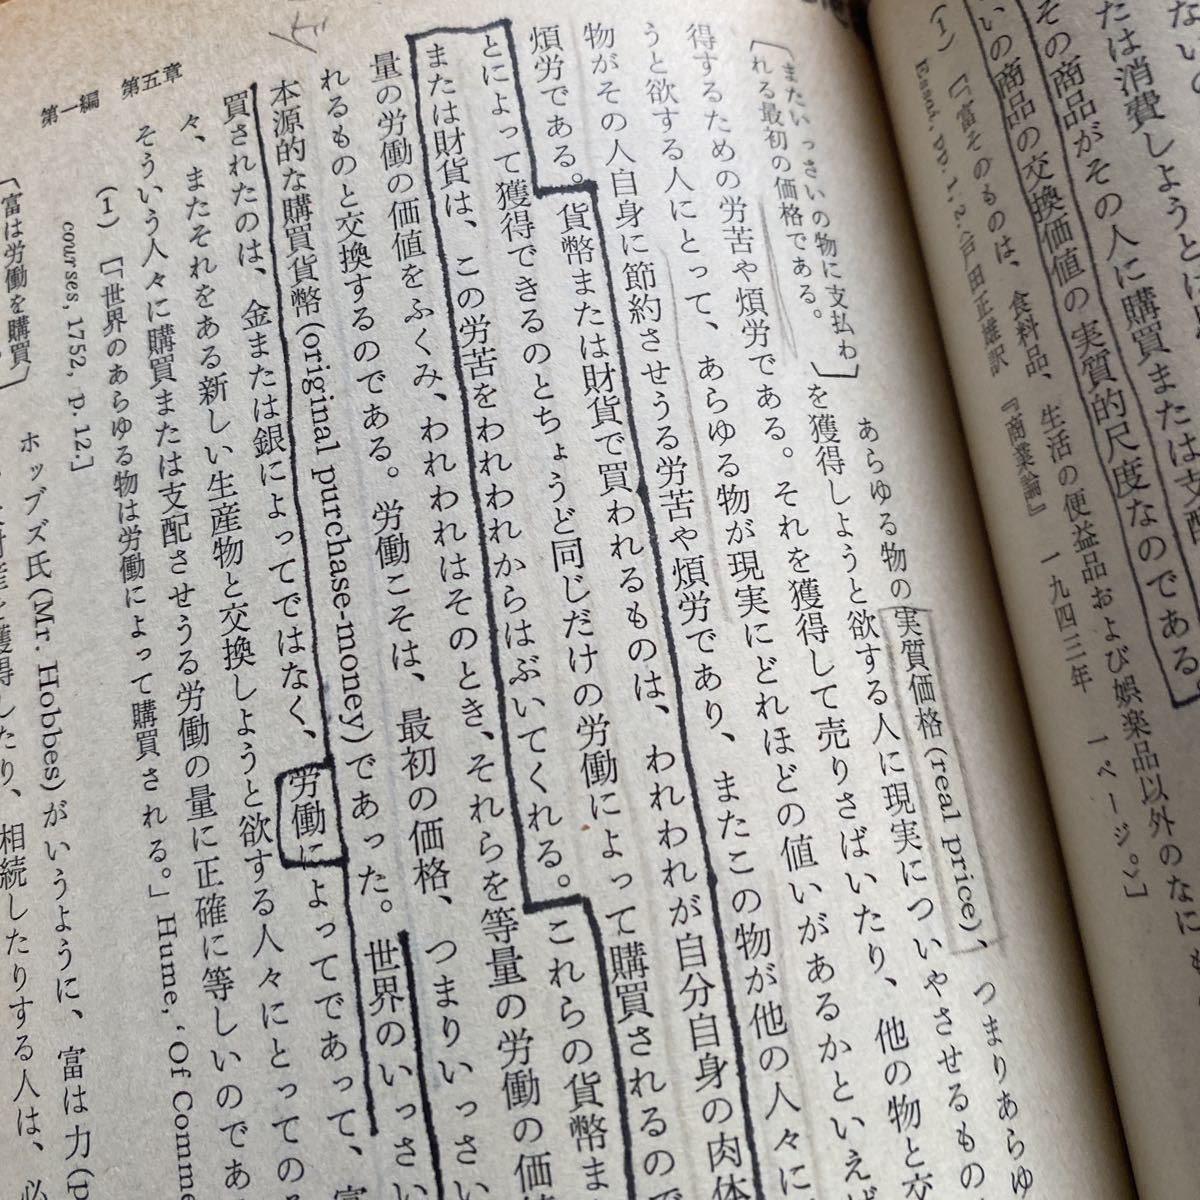 ないで
たは消費しようとは
その商品がその人に購買または支配
いの商品の交換価値の実質的尺度なのである。
(1) 〔「富そのものは、食料品、生活の便益品および娯楽品以外のなにも
Essad, pp. 1, 2. 戸田正雄訳『商業論』一九四三年 一ページ。〕
あらゆる物の実質価格(real price)、つまりあらゆ
〔またいっさいの物に支払わ
れる最初の価格である。〕
を獲得しようと欲する人に現実についやさせるもの
得するための労苦や煩労である。それを獲得して売りさばいたり、他の物と交
うと欲する人にとって、あらゆる物が現実にどれほどの値いがあるかといえば
物がその人自身に節約させうる労苦や煩労であり、またこの物が他の人々に
煩労である。貨幣または財貨で買われるものは、われわれが自分自身の肉体
とによって獲得できるのとちょうど同じだけの労働によって購買されるので
または財貨は、この労苦をわれわれからはぶいてくれる。これらの貨幣ま
量の労働の価値をふくみ、われわれはそのとき、それらを等量の労働の価値
れるものと交換するのである。労働こそは、最初の価格、つまりいっさい
本源的な購買貨幣(original purchase-money)であった。世界のいっさい
買されたのは、金または銀によってではなく、労働によってであって、富
々、またそれをある新しい生産物と交換しようと欲する人々にとってのそ
そういう人々に購買または支配させうる労働の量に正確に等しいのであ
(1) 〔「世界のあらゆる物は労働によって購買される。」Hume, "Of Comme
courses, 1752, p. 12.〕
〔富は労働を購買
ホッブズ氏(Mr. Hobbes)がいうように、富は力(p
獲得したり、相続したりする人は、必
第一編 第五章